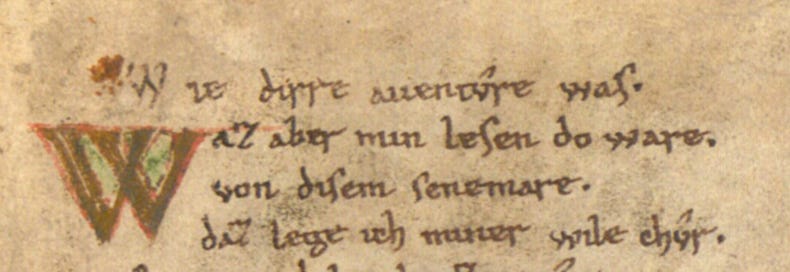 W ie dirre auenture was.
Waz aber min lesen do ware.
von disem senemare.
daz lege ich miner wile chůr.